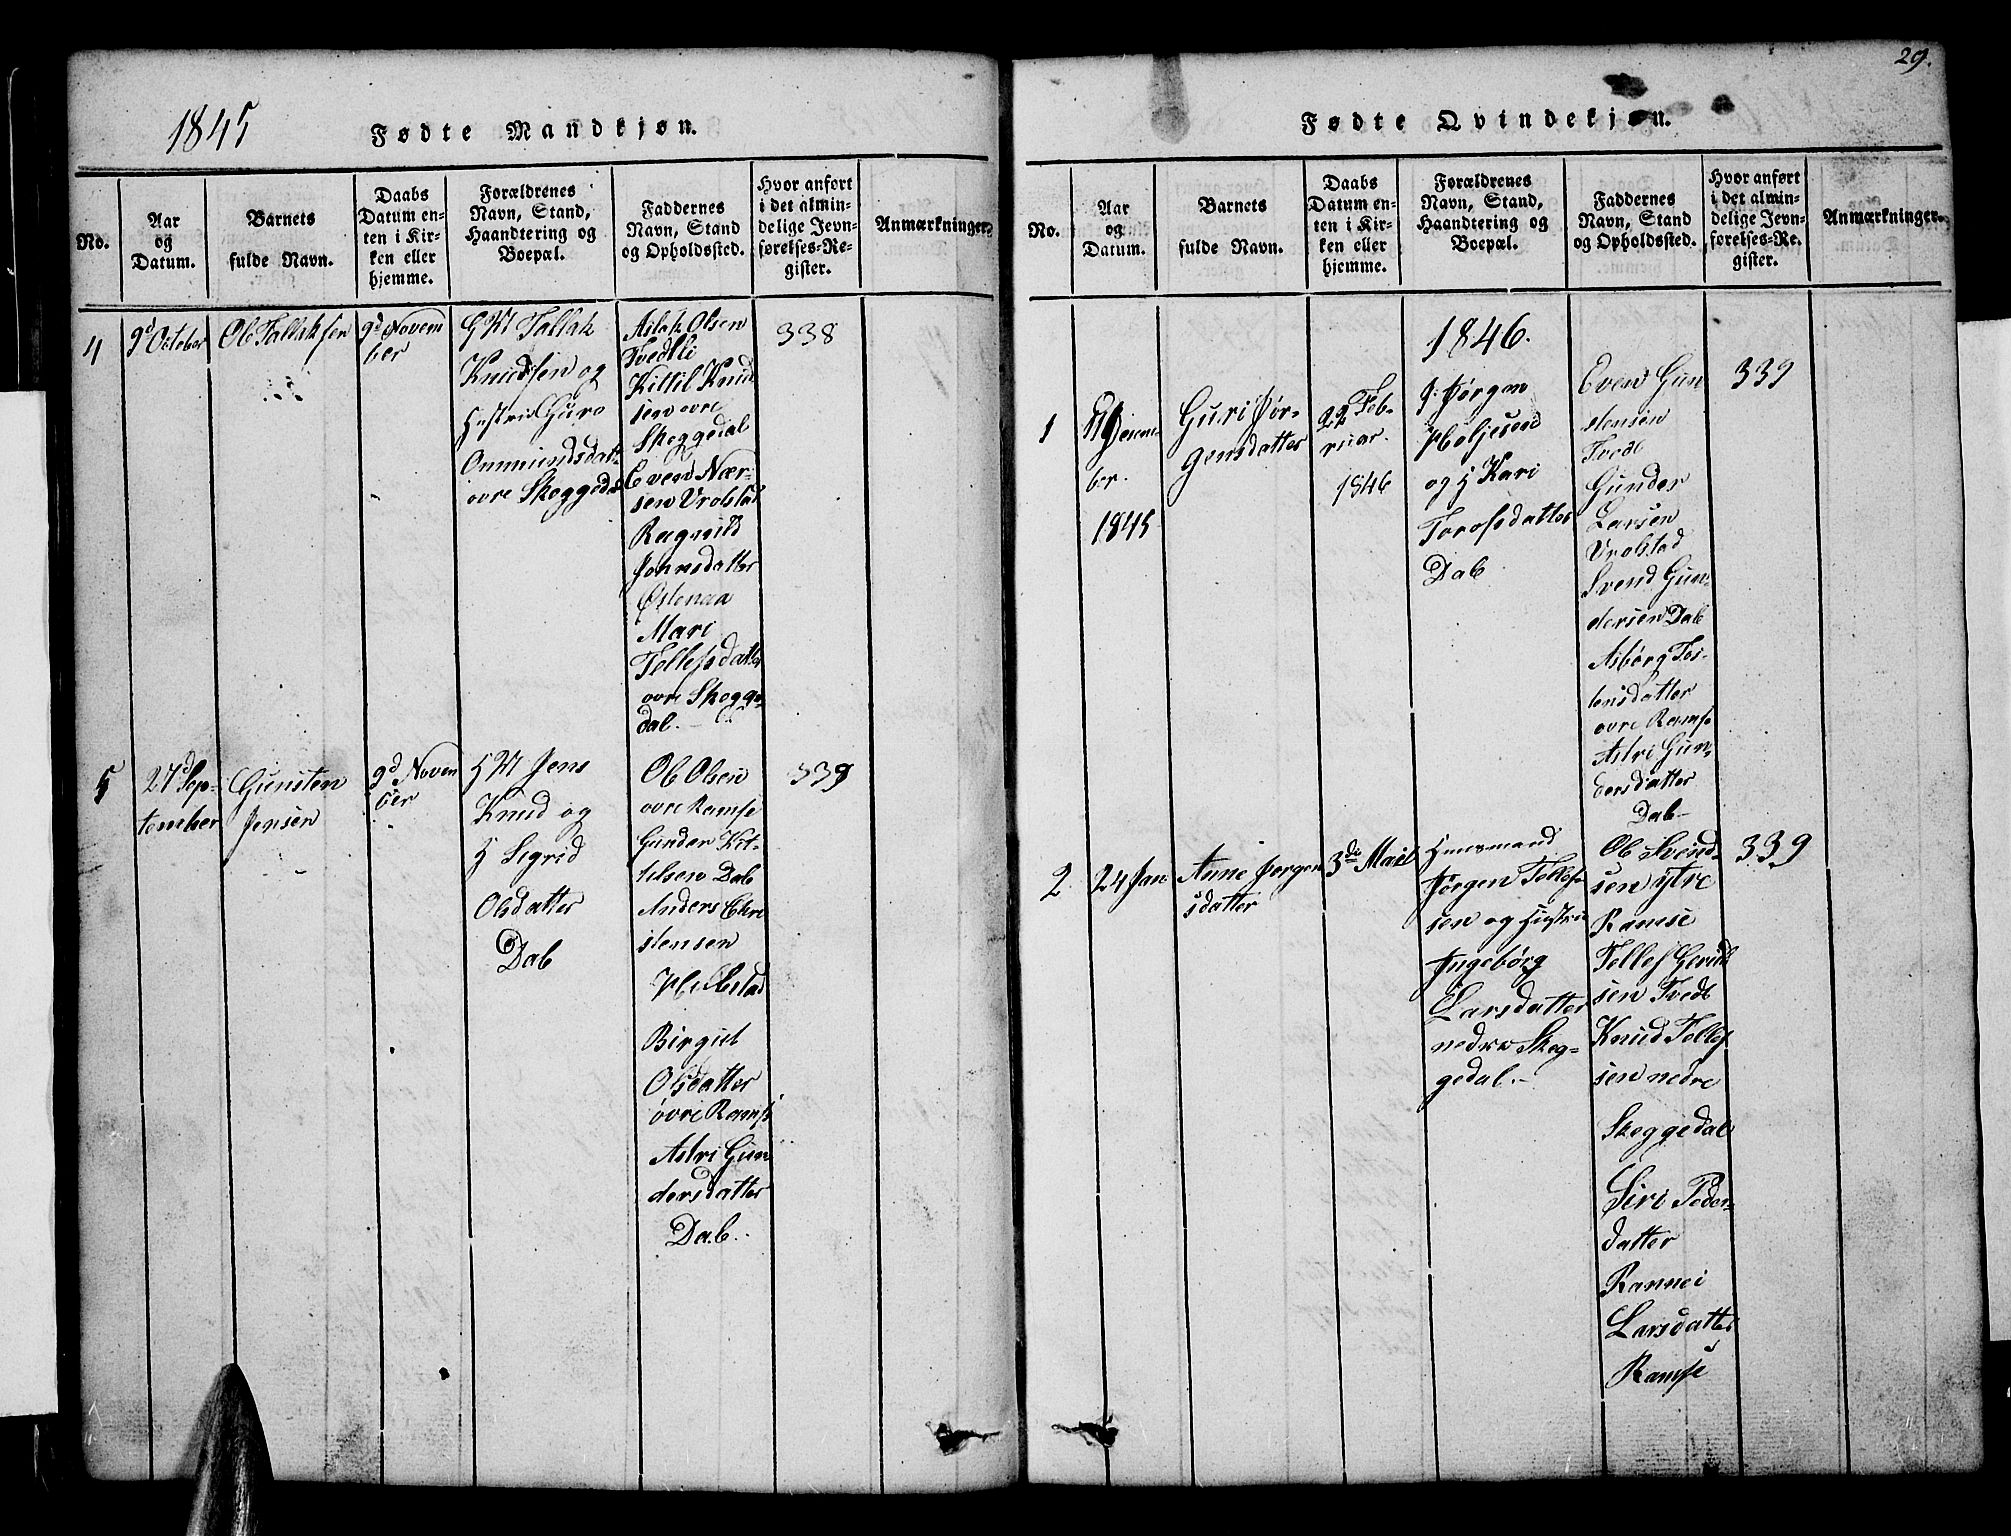 29.
1845
Fødte Mandkjøn.
No.
Aar
og
Datum.
Barnets
fulde Navn.
Daabs
Datum en-
ten i Kir-
ken eller
hjemme.
Forældrenes
Navn, Stand,
Haandtering og
Boepæl.
Faddernes
Navn, Stand
og Opholdssted.
Hvor anført
i det almin-
delige Jevn-
førelses-Re-
gister.
Anmærkninger.
4
9d October
Ole Tallaksen
9d Novem
ber
Tallak
Knudsen og
Hustru Guro
Ommundsdatt
øvre Skeggedal
Aslak Olsen
Tvedtli
Kittil Knud
sen øvre
Skeggedal
Even Nær-
sen Vrolstad
Ragnild
Jonnsdatter
Østenaa
Mari
Tellefsdatter
øvre Skegge-
dal.
338
5
27d Sep-
tember
Gunsten
Jensen
9d Novem
ber
Jens
Knud og
H Sigrid
Olsdatter
Dale
Ole Olsen
øvre Ramse
Gunder Kit-
telsen Dale
Anders Chri
stensen
Birgit
Olsdatter
øvre Ramse
Astri Gun
dersdatter
Dale.
339
Fødte Qvindekjøn.
No.
Aar
og
Datum.
Barnets
fulde Navn.
Daabs
Datum en-
ten i Kir-
ken eller
hjemme.
Forældrenes
Navn, Stand,
Haandtering og
Boepæl.
Faddernes
Navn, Stand
og Opholdssted.
Hvor anført
i det almin-
delige Jevn-
førelses-Re-
gister.
Anmærkninger.
1846.
1
ber.
1845
Guri Jør-
gensdatter
22 Feb-
ruar.
1846
Jørgen
og H Kari
Torofsdatter
Dale
Even Gun
stensen
Tvedt
Gunder
Larsen
Vrolstad
Svend Gun-
dersen Dale
Asbørg Tos-
tensdatter
øvre Ramse
Astri Gun-
dersdatter
Dale
339
2.
24 Jan
Anne Jørgen
sdatter
3die Mai
Huusmand
Jørgen Tellef-
sen og Hustru
Ingebørg
Larsdatter
nedre Skeg-
gedal.
Ole Svend-
sen ytre
Ramse
Tellef
sen Tvedt
Knud Tellef
sen nedre
Skeggedal
Siri Peder-
datter
Rannei
Larsdatter
Ramse
339